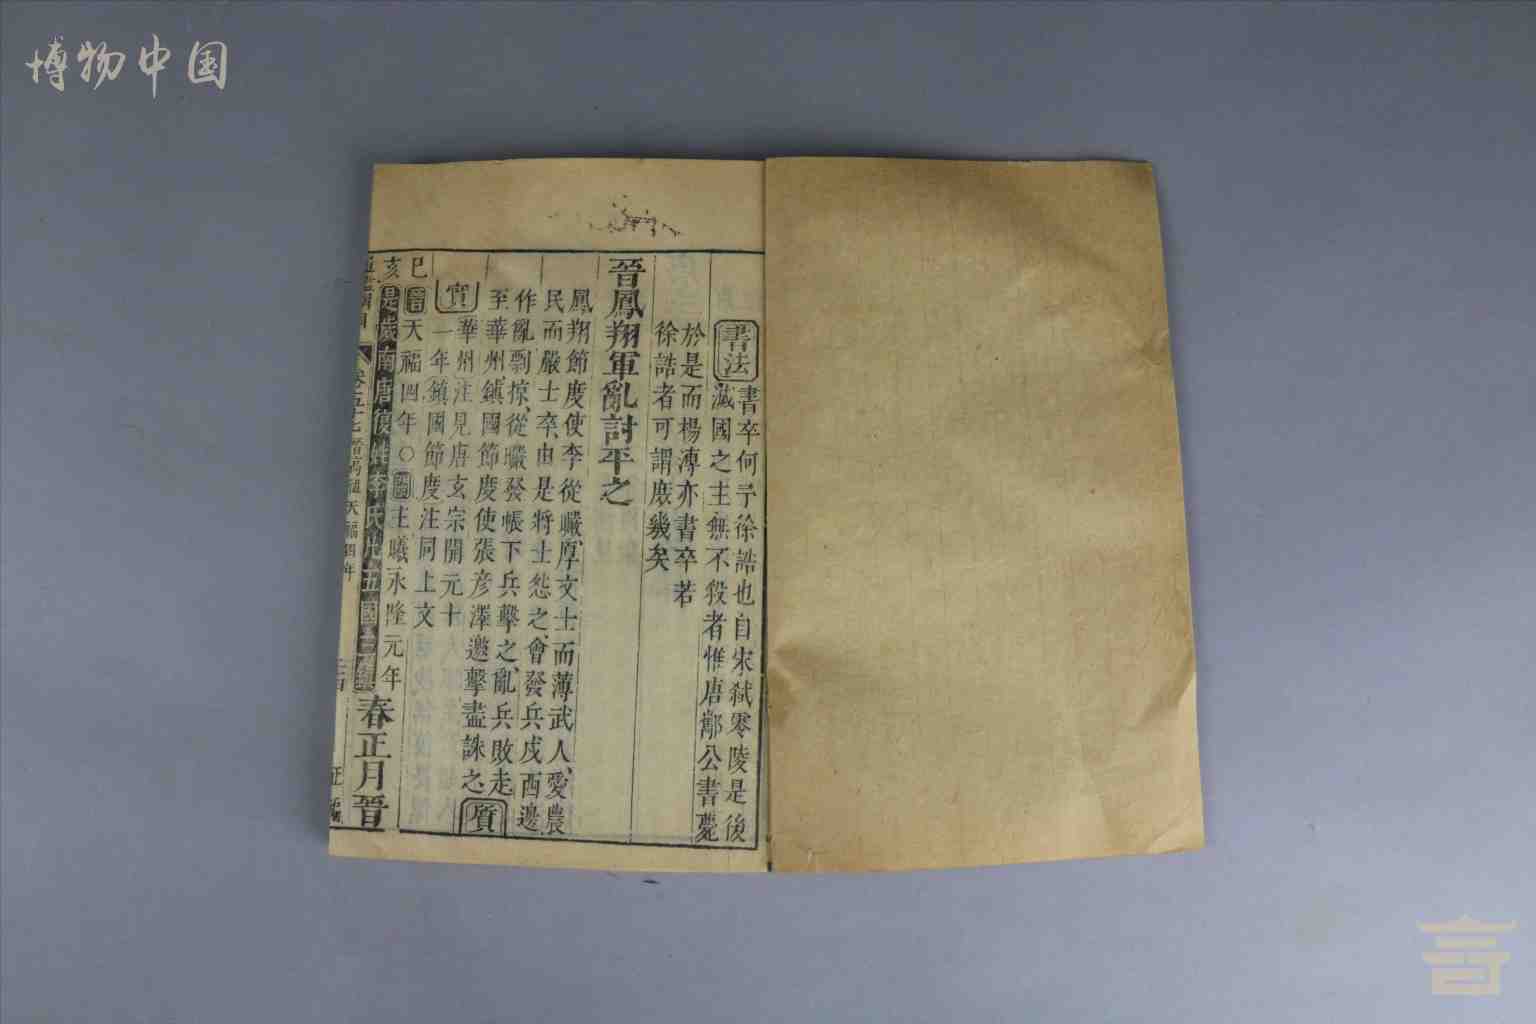 博物中国
書法
書卒何予徐誥也自宋弑零陵是後
滅國之主無不殺者惟唐酅公書薨
於是而楊溥亦書卒若
徐誥者可謂庶幾矣
晉鳳翔軍亂討平之
鳳翔節度使李從曮厚文士而薄武人、愛農
民而嚴士卒、由是將士怨之、會發兵戍西邊
作亂剽掠、從曮發帳下兵擊之、亂兵敗走
至華州、鎮國節度使張彥澤邀擊盡誅之
質
實
華州注見唐玄宗開元十
一年鎮國節度注同上文
己
亥
晉天福四年○閩主曦永隆元年
是歲南唐復姓李氏
春正月晉
卷五十七 晉高祖天福四年